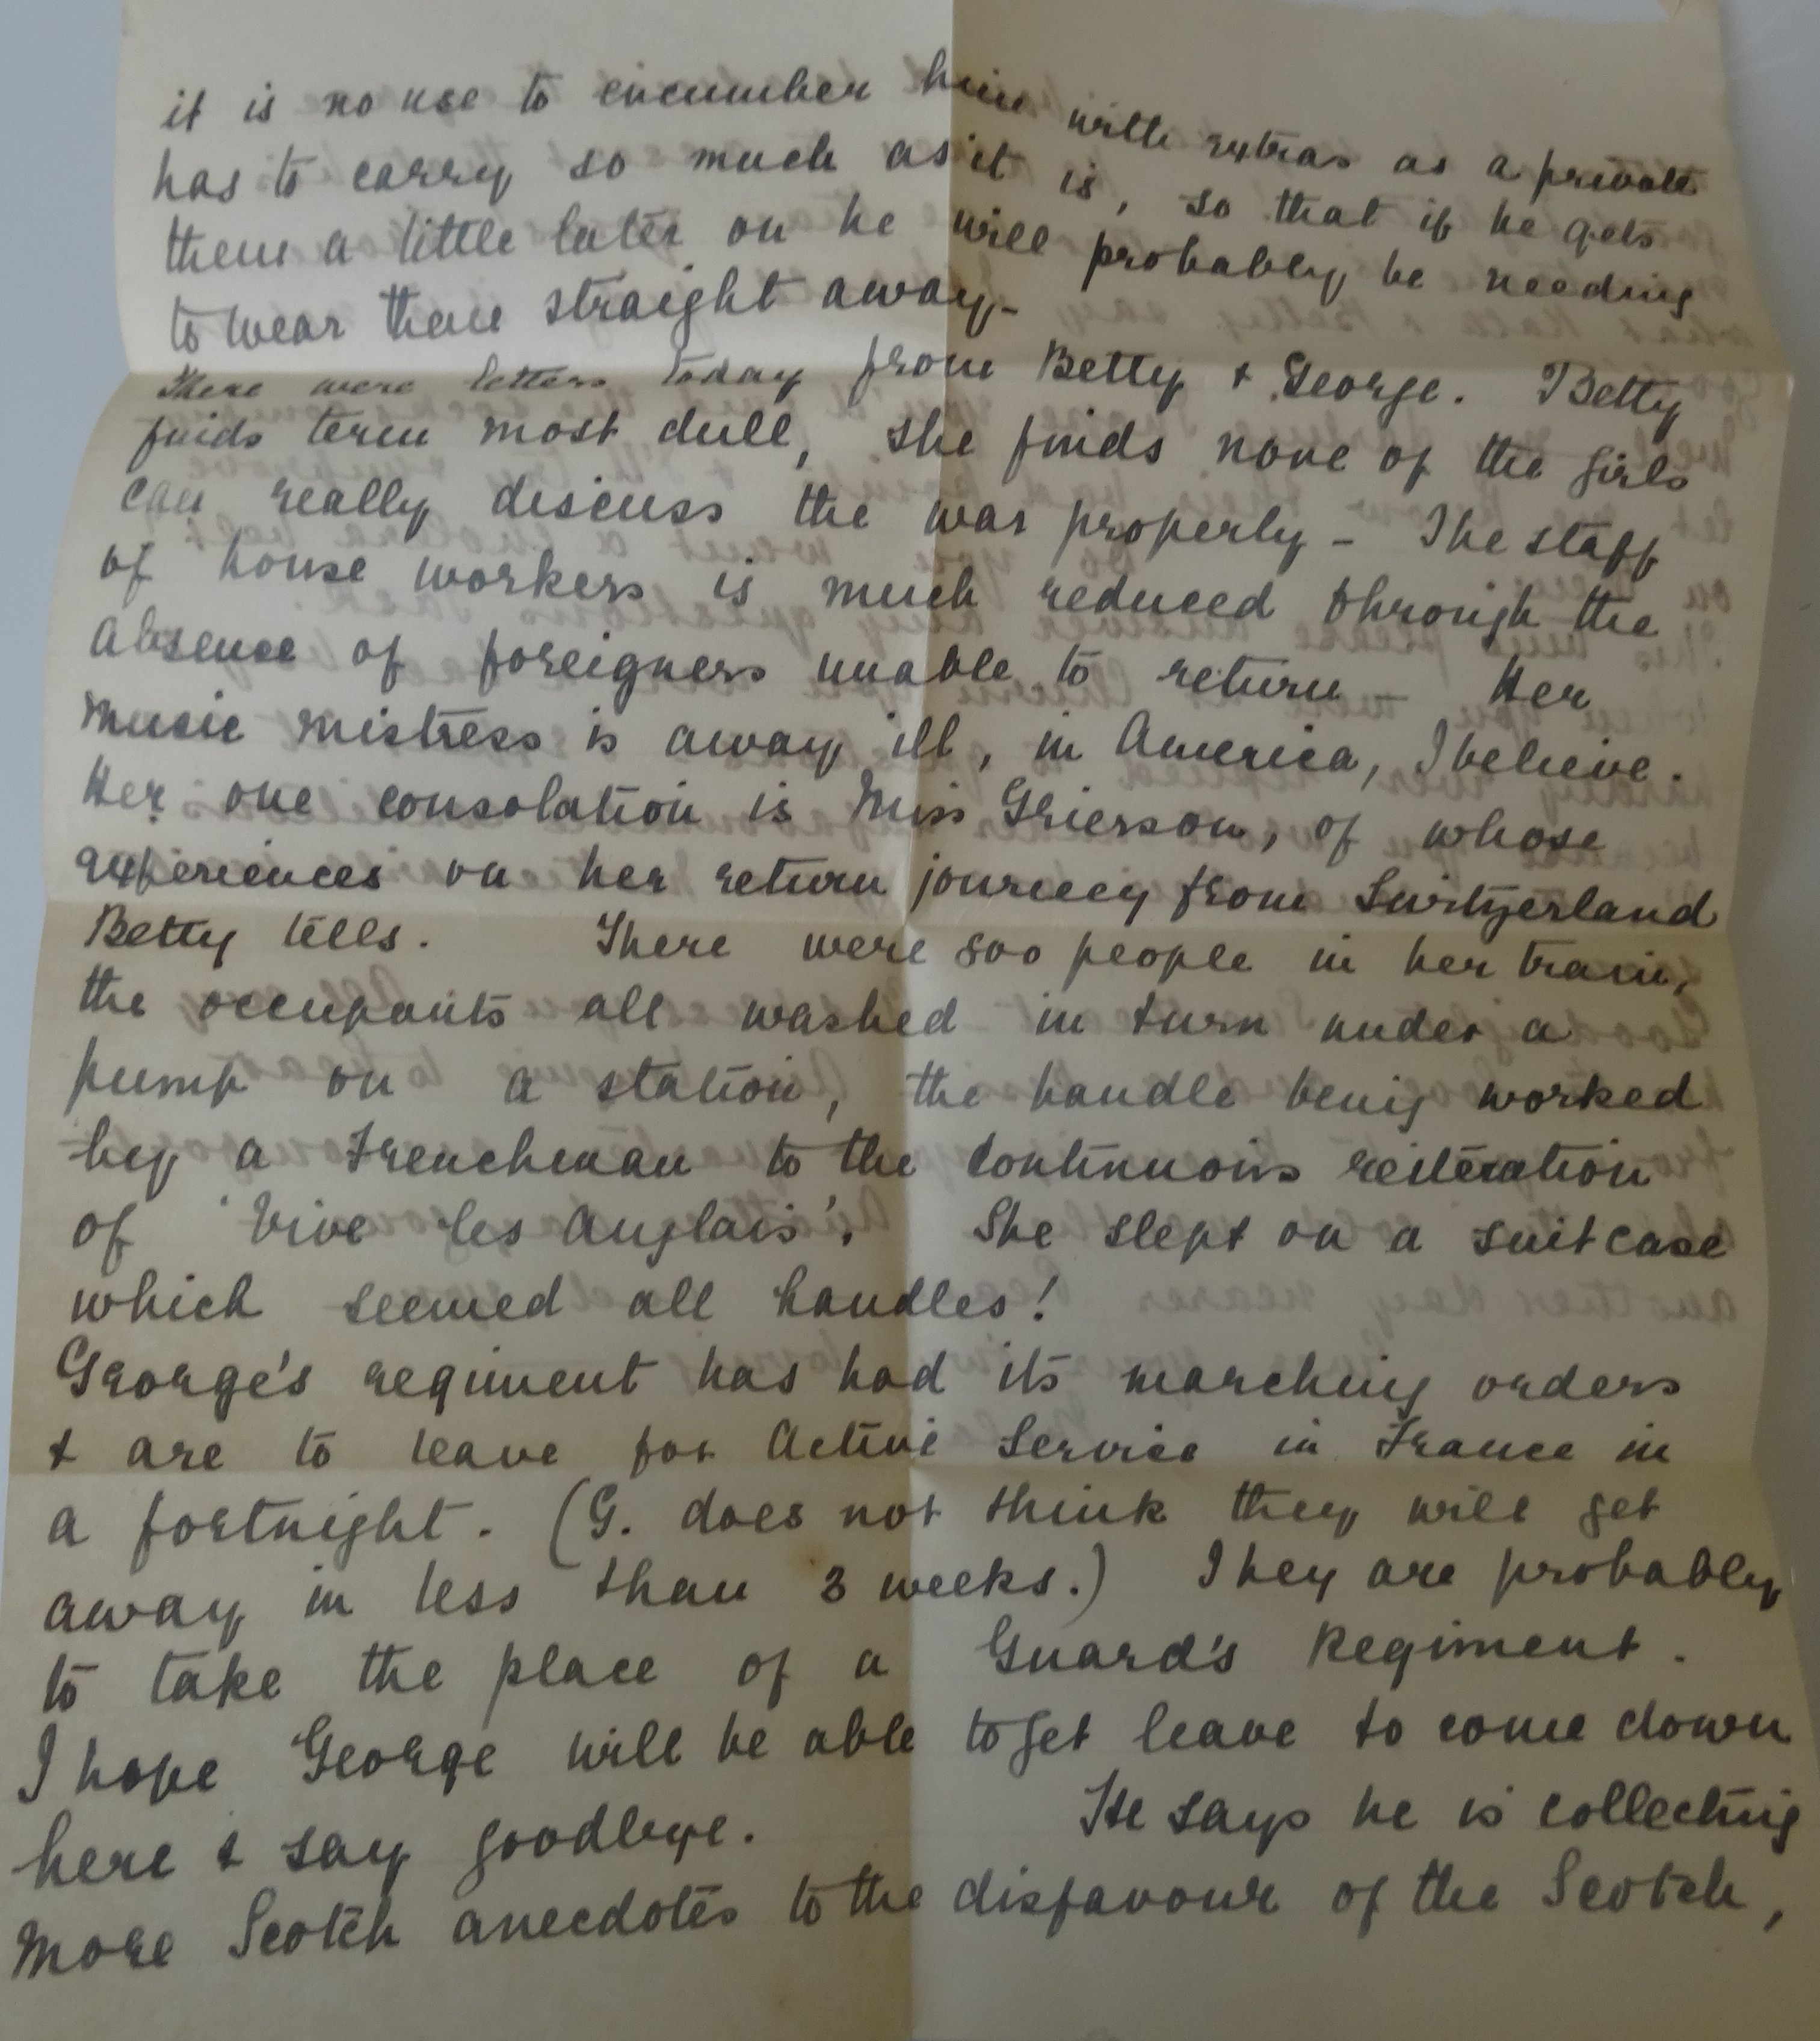 it is no use to encumber him with extras as a private
has to carry so much as it is, so that if he gets
them a little later on he will probably be needing
to wear them straight away-
There were letters today from Betty & George. Betty
finds term most dull, she finds none of the girls
can really discuss the war properly - The staff
of house workers is much reduced through the
absence of foreigners unable to return - Her
music mistress is away ill, in America, I believe.
Her one consolation is Miss Grierson, of whose
experiences on her return journey from Switzerland
Betty tells. There were 800 people in her train,
the occupants all washed in turn under a
pump on a station, the handle being worked
by a Frenchman to the continuous reiteration
of 'Vive les Anglais'. She slept on a suitcase
which seemed all handles!
George's regiment has had its marching orders
& are to leave for Active Service in France in
a fortnight. (G. does not think they will get
away in less than 3 weeks.) They are probably
to take the place of a Guard's Regiment.
I hope George will be able to get leave to come down
here & say goodbye. He says he is collecting
more Scotch anecdotes to the disfavour of the Scotch,